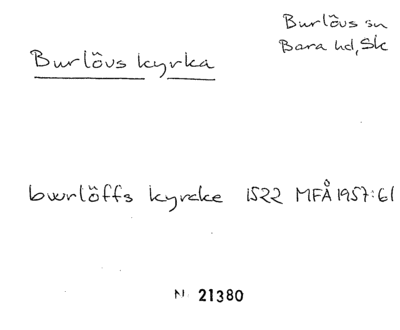 Burlövs sn
Bara hd, Sk
Burlövs kyrka
bwrlöffs kyrcke 1522 MFÅ 1957:61
N 21380